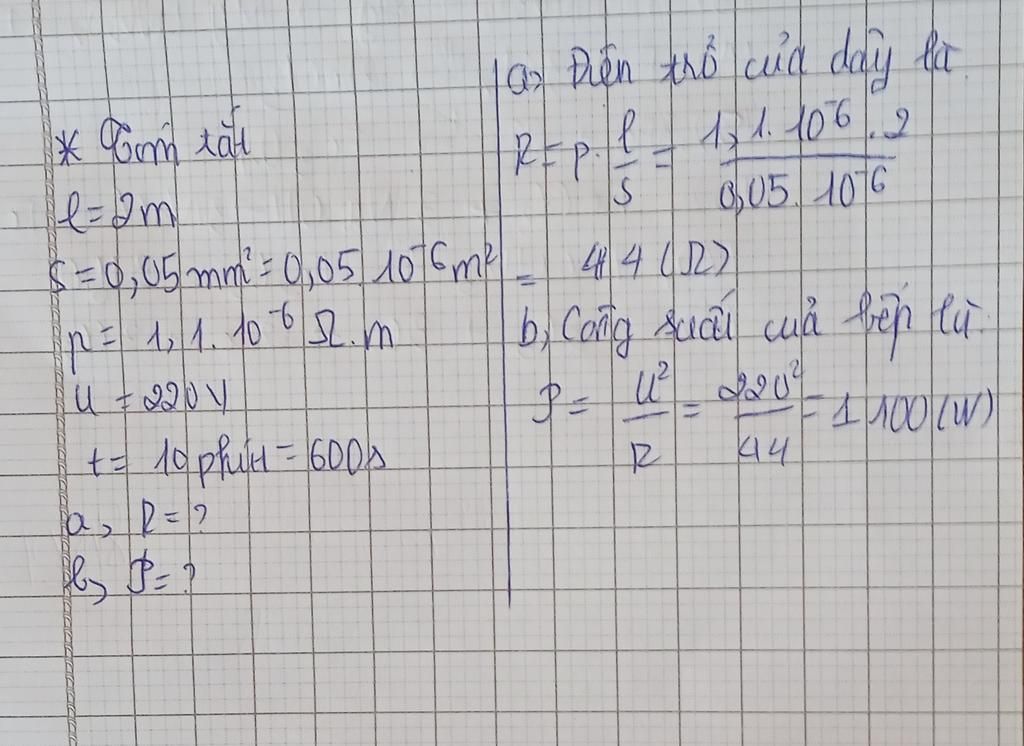 * Tóm tắt
l = 2m
S = 0,05 mm² = 0,05. 10⁻⁶ m²
p = 1,1. 10⁻⁶ Ω.m
U = 220V
t = 10 phút = 600s
a, R = ?
b, P = ?
a, Điện trở của dây là
R = p. l/S = 1,1. 10⁻⁶ . 2 / 0,05. 10⁻⁶
= 44 (Ω)
b, Công suất của bếp là
P = U²/R = 220²/44 = 1100 (W)